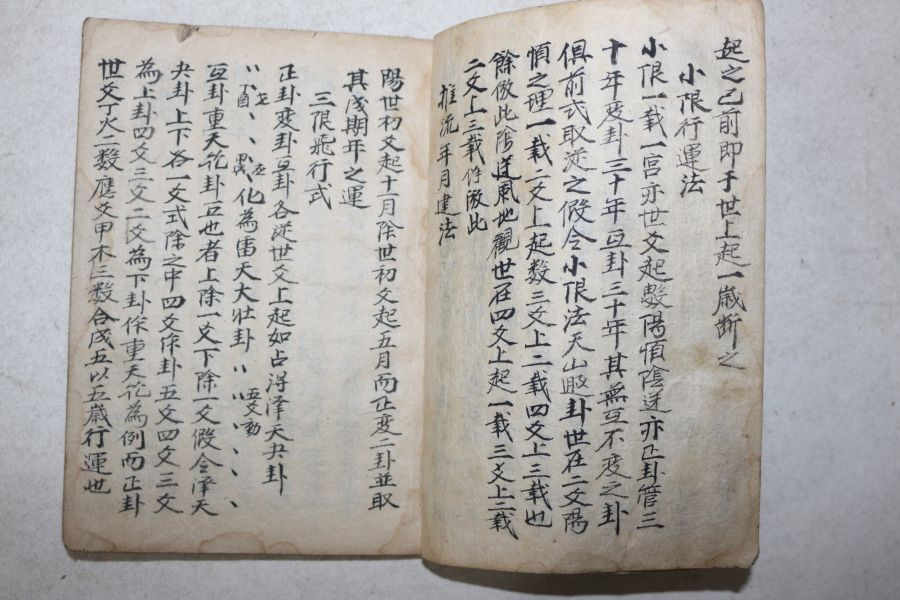 起之乙前即于世上起一歲斷之
小限行運法
小限一載一宮亦世爻起數陽順陰逆亦正卦管三
十年變卦三十年互卦三十年其無互不變之卦
俱前式取逆之假令小限法天山遯卦世在二爻陽
順之理一載二爻上起数三爻上二載四爻上三載也
餘倣此陰逆風地觀世在四爻上起一載三爻上二載
二爻上三載件倣此
推流年月建法
陽世初爻起十一月除世初爻起五月而正変二卦並取
其成期年之運
三限飛行式
正卦変卦互卦各從世爻上起如占得澤天夬卦
化為雷天大壯卦 五爻動
互卦重天乾卦互也者上除一爻下除一爻假令澤天
夬卦上下各一爻式除之中四爻作卦五爻四爻三爻
為上卦四爻三爻二爻為下卦作重天乾為例而正卦
世爻丁火二数應爻甲木三数合成五以五歲行運也